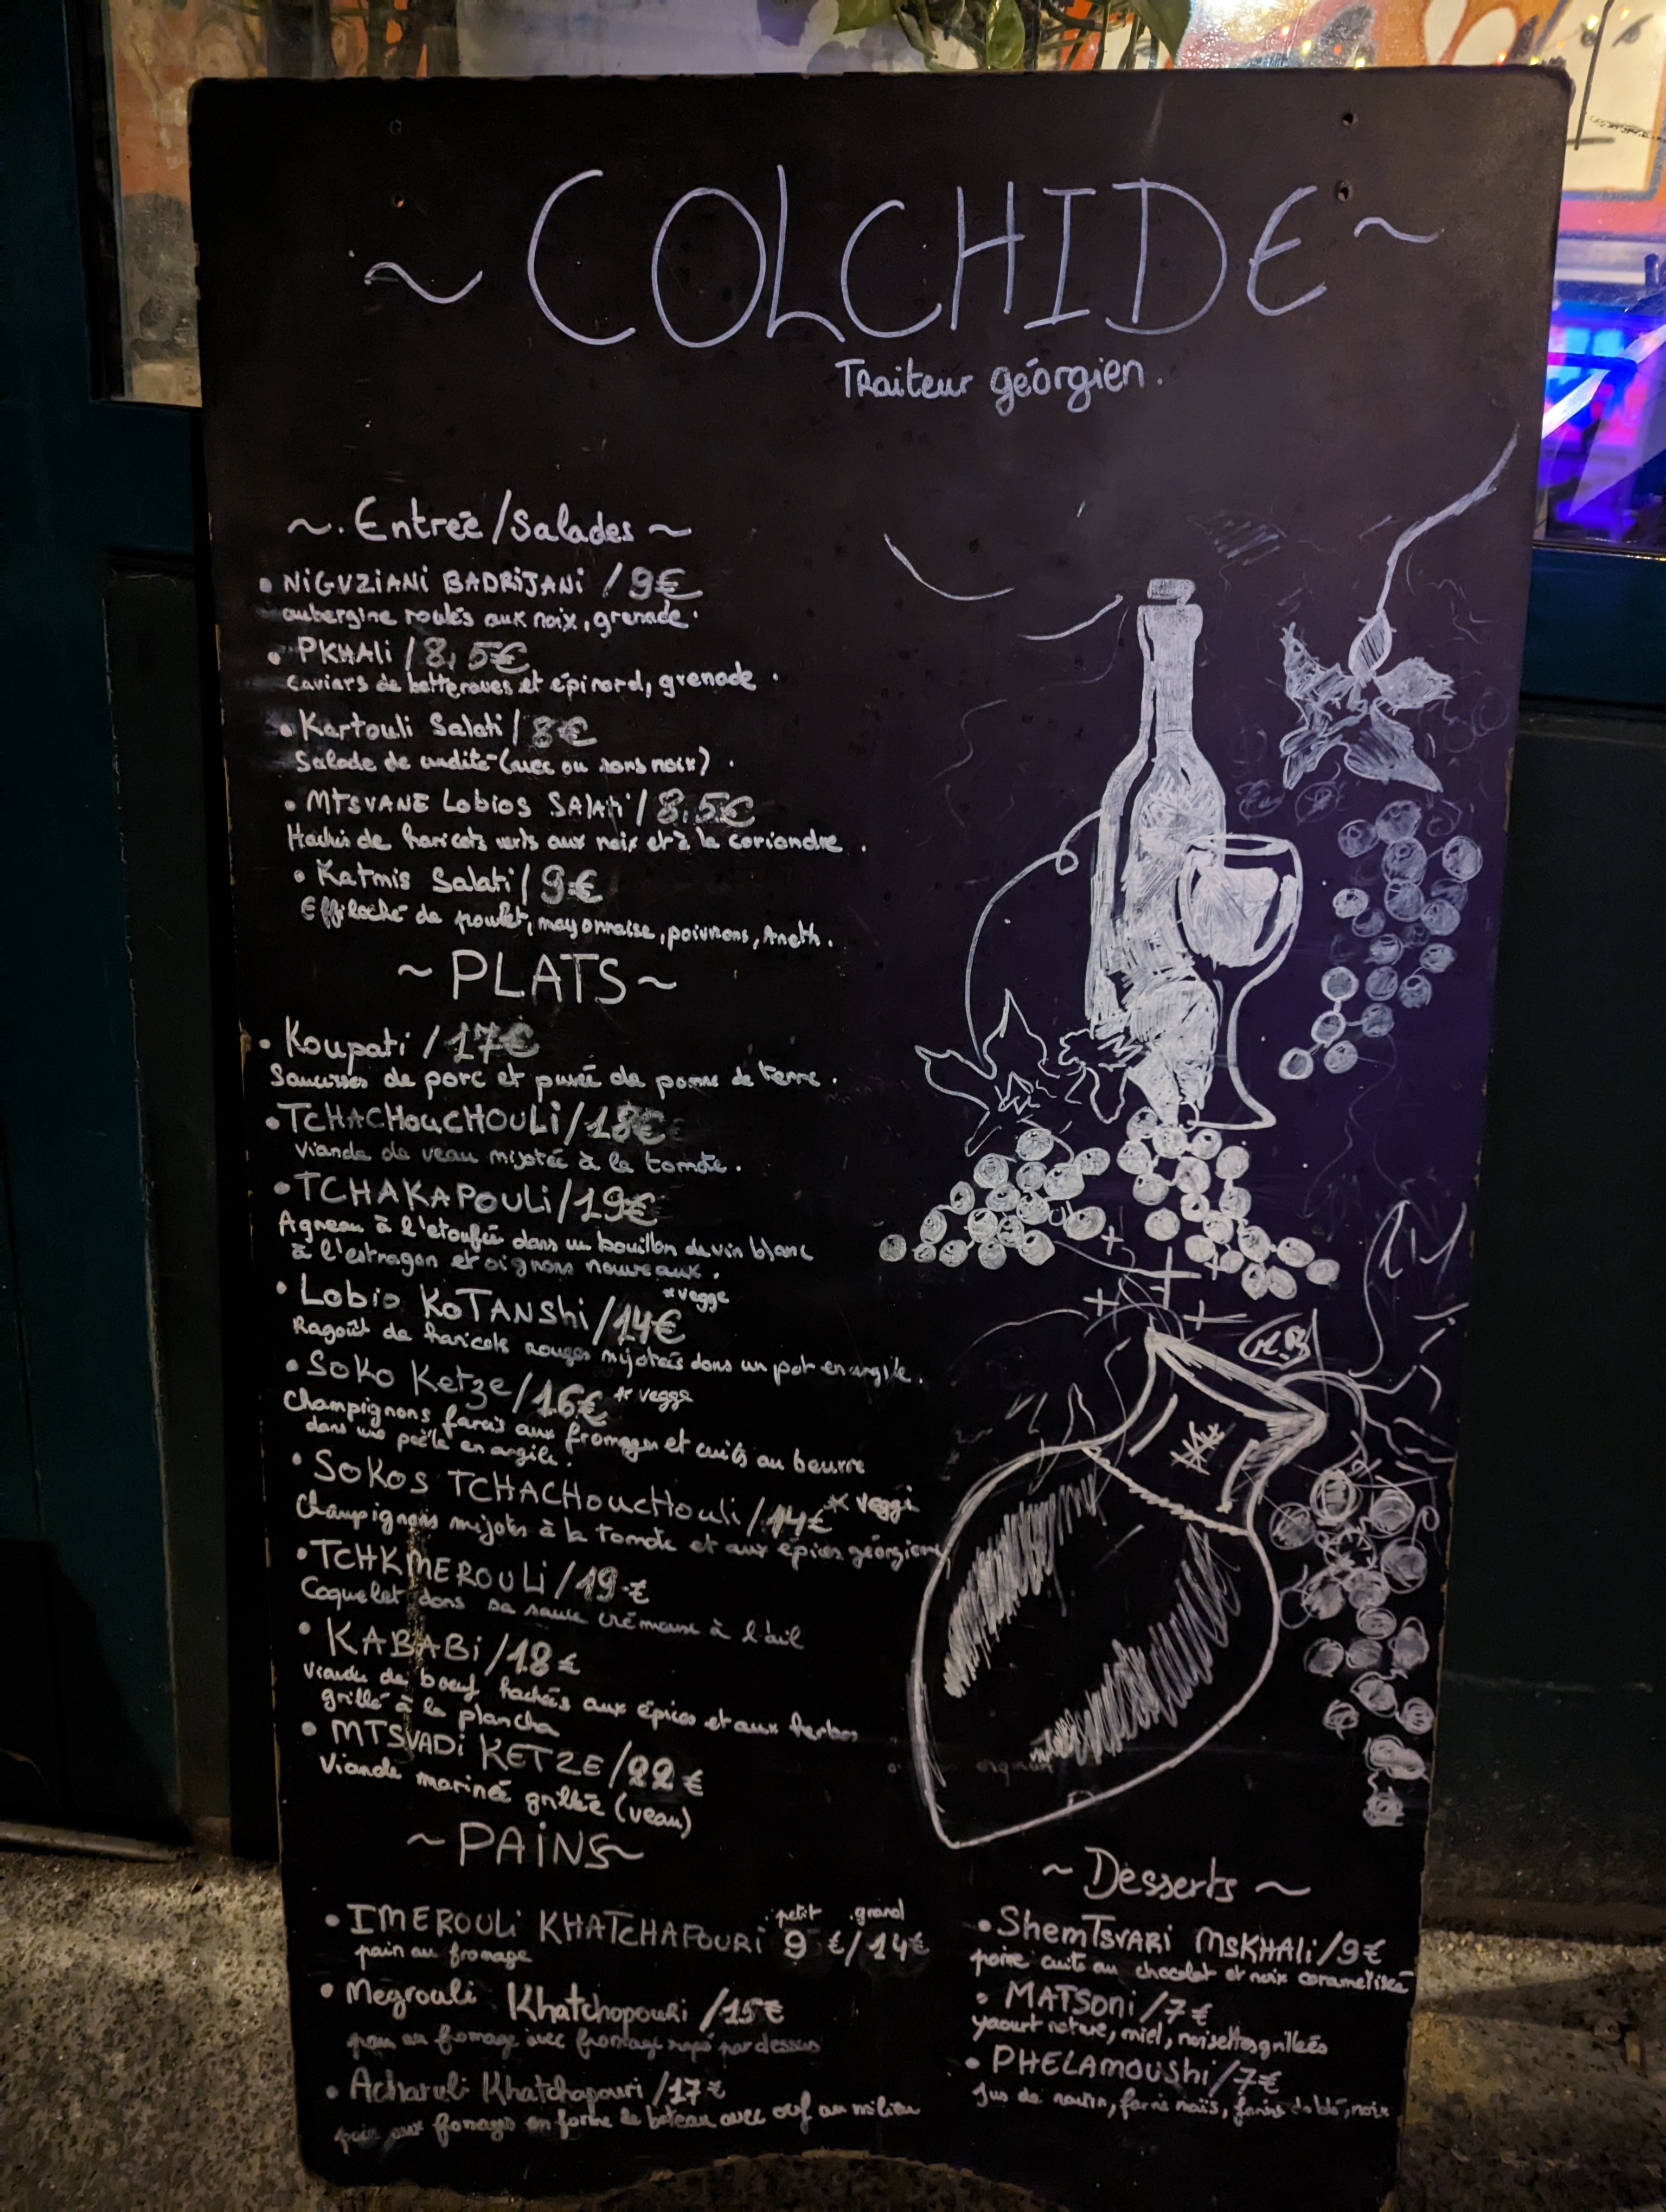 ~ COLCHIDE ~
Traiteur géorgien.
~. Entreé/Salades ~
• NiGVZiANi BADRiJANi / 9€
aubergine roulés aux noix, grenade.
• PKHALi / 8,5€
caviars de betteraves et épinard, grenade.
• Kartouli Salati / 8€
Salade de crudité (avec ou sans noix).
• MTSVANE Lobios SALATi / 8,5€
Hachis de haricots verts aux noix et à la coriandre.
• Katmis Salati / 9€
Effiloché de poulet, mayonnaise, poivrons, Aneth.
~ PLATS ~
• Koupati / 17€
Saucisses de porc et purée de pomme de terre.
• TCHACHOUCHOULi / 18€
Viande de veau mijotée à la tomate.
• TCHAKAPOULi / 19€
Agneau à l'etoufée dans un bouillon de vin blanc
à l'estragon et oignons nouveaux.
• Lobio KOTANShi / 14€ *vegge
Ragoût de haricots rouges mijotés dans un pot en argile.
• SOKO Ketze / 16€ * vegge
Champignons farcis aux fromages et cuits au beurre
dans une poêle en argile.
• SOKOS TCHACHOUCHOULi / 14€ * veggi
Champignons mijotés à la tomate et aux épices géorgiens
• TCHKMEROULi / 19€
Coquelet dans sa sauce crémeuse à l'ail
• KABABi / 18€
Viande de boeuf hachés aux épices et aux herbes
grillé à la plancha
• MTSVADi KETZE / 22€
Viande marinée grillée (veau)
~ PAiNS ~
petit grand
• IMEROULi KHATCHAPOURi 9€/14€
pain au fromage
• Megrouli Khatchapouri / 15€
pain au fromage avec fromage rapé par dessus
• Acharuli Khatchapouri / 17€
pain aux fromages en forme de bateau avec œuf au milieu
~ Desserts ~
• ShemTSVARi MSKHALi / 9€
poire cuite au chocolat et noix caramélisé
• MATSONi / 7€
yaourt nature, miel, noisettes grillées
• PHELAMOUShi / 7€
Jus de raisin, farine maïs, farine de blé, noix